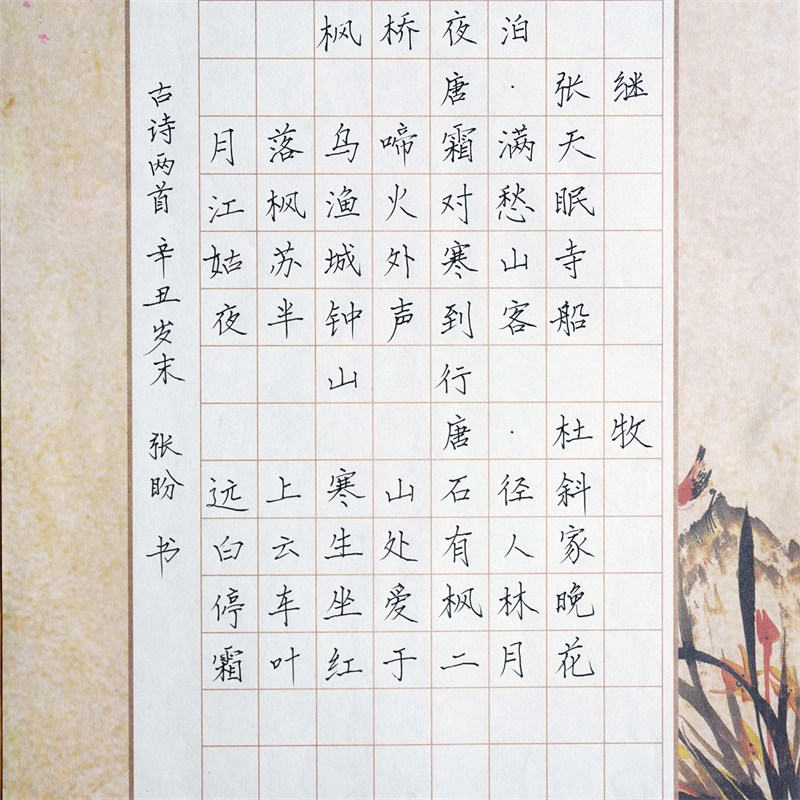 枫桥夜泊
唐·张继
月落乌啼霜满天
江枫渔火对愁眠
姑苏城外寒山寺
夜半钟声到客船
山行
唐·杜牧
远上寒山石径斜
白云生处有人家
停车坐爱枫林晚
霜叶红于二月花
古诗两首 辛丑岁末 张盼 书